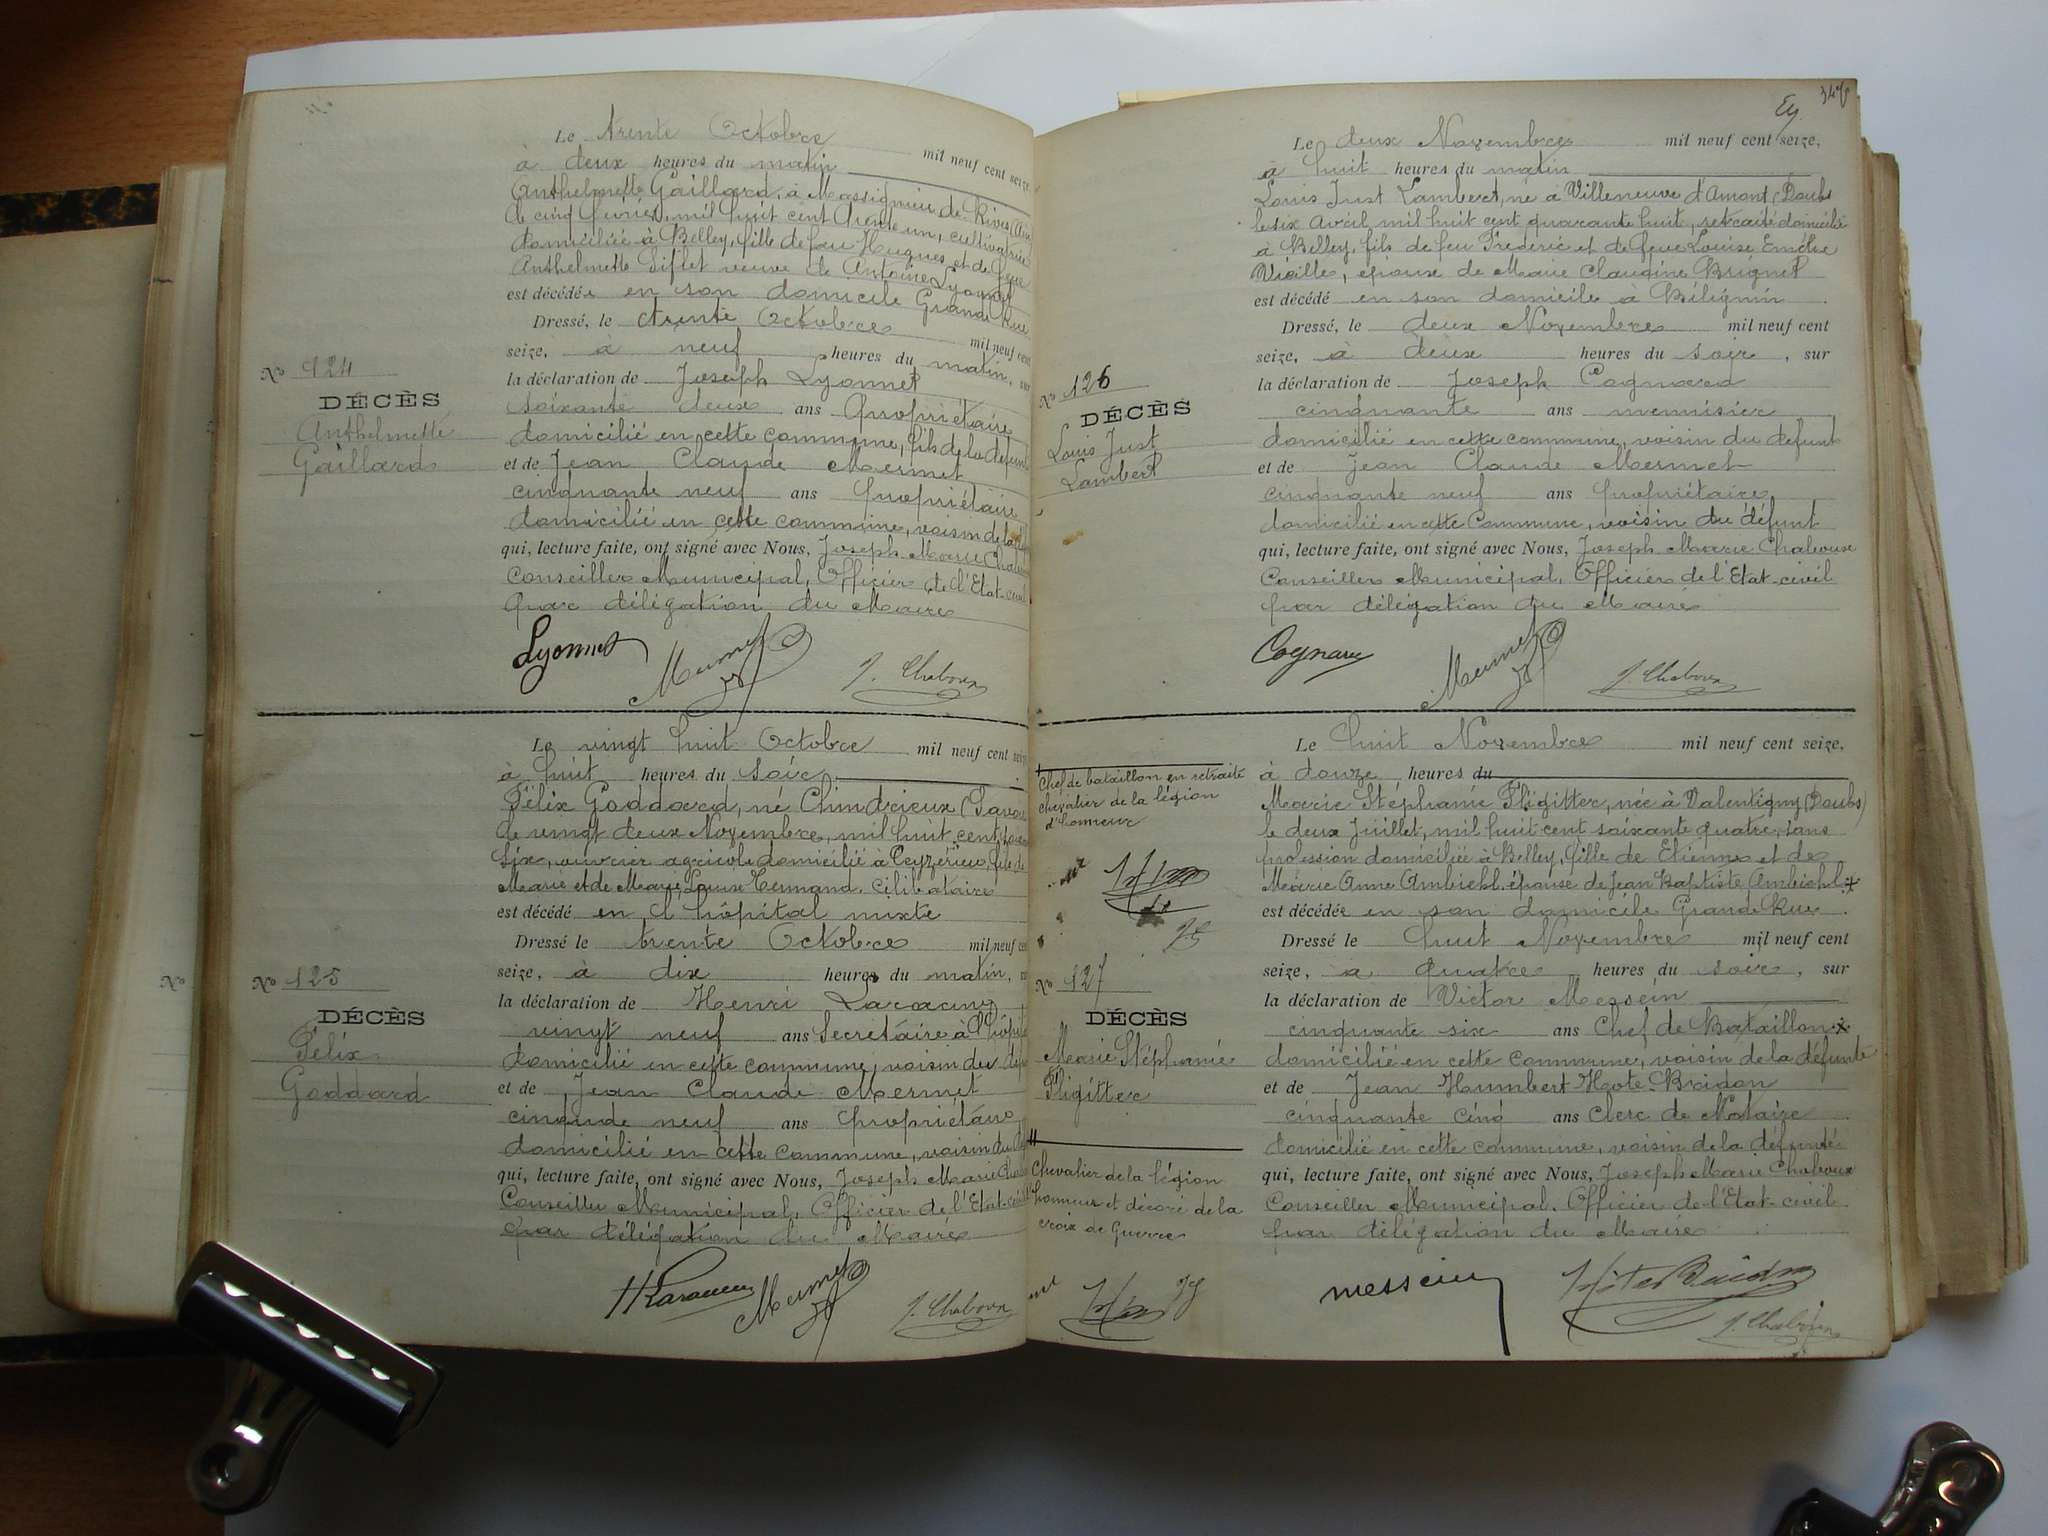 Le trente Octobre mil neuf cent seize,
à deux heures du matin
Anthelmette Gaillard, à Massignieu de Rives (Ain
le cinq février, mil huit cent trente un, cultivatrice
domiciliée à Belley, fille de feu Hugues et de feue
Anthelmette Siflet veuve de Antoine Lyonnet
est décédée en son domicile Grande Rue
Dressé, le trente Octobre mil neuf cent
seize, à neuf heures du matin, sur
la déclaration de Joseph Lyonnet
soixante deux ans propriétaire
domicilié en cette commune, fils de la défunte
et de Jean Claude Mermet
cinquante neuf ans propriétaire
domicilié en cette commune, voisin de la
qui, lecture faite, ont signé avec Nous, Joseph Marie
Conseiller Municipal, Officier de l'Etat-civil
par délégation du Maire
Nº 124
DÉCÈS
Anthelmette
Gaillard
Lyonnet Mermet J. Chaboux
Le vingt huit Octobre mil neuf cent seize
à huit heures du soir
Félix Goddard, né Chindrieux (Savoie
le vingt deux Novembre, mil huit cent
six, ouvrier agricole domicilié à Ceyzérieu, fils de
Marie et de Marie Louise cilibataire
est décédé en l'hôpital mixte
Dressé le trente Octobre mil neuf cent
seize, à dix heures du matin,
la déclaration de Henri Laracine
vingt neuf ans Secretaire à l'hôpital
domicilié en cette commune, voisin du
et de Jean Claude Mermet
cinquante neuf ans propriétaire
domicilié en cette commune, voisin du
qui, lecture faite, ont signé avec Nous, Joseph Marie
Conseiller Municipal, Officier de l'Etat-civil
par délégation du Maire
Nº 125
DÉCÈS
Félix
Goddard
Mermet J. Chaboux
Le deux Novembre mil neuf cent seize,
à huit heures du matin
Louis Just Lambert, né à Villeneuve d'Amont (Doubs
le six avril mil huit cent quarante huit, retraité domicilié
à Belley, fils de feu Fréderic et de feue Louise
Vieille, épouse de Marie Claudine Brignet
est décédé en son domicile à Bilignin
Dressé, le deux Novembre mil neuf cent
seize, à deux heures du soir, sur
la déclaration de Joseph Cognard
cinquante ans menuisier
domicilié en cette commune, voisin du defunt
et de Jean Claude Mermet
cinquante neuf ans propriétaire
domicilié en cette Commune, voisin du défunt
qui, lecture faite, ont signé avec Nous, Joseph Marie Chaboux
Conseiller Municipal, Officier de l'Etat-civil
par délégation du Maire
Nº 126
DÉCÈS
Louis Just
Lambert
Cognard Mermet J. Chaboux
Le huit Novembre mil neuf cent seize,
à douze heures du
Marie Stéphanie Fligitter, née à Valentigny (Doubs)
le deux Juillet, mil huit cent soixante quatre, sans
profession domiciliée à Belley, fille de Etienne et de
Marie Anne Ambiehl, épouse de Jean Baptiste Ambiehl +
est décédée en son domicile Grande Rue
Dressé le huit Novembre mil neuf cent
seize, à quatre heures du soir, sur
la déclaration de Victor Messein
cinquante six ans Chef de Bataillon
domicilié en cette commune, voisin de la défunte
et de Jean Humbert Hote Bridon
cinquante cinq ans Clerc de Notaire
domicilié en cette commune, voisin de la défunte
qui, lecture faite, ont signé avec Nous, Joseph Marie Chaboux
Conseiller Municipal, Officier de l'Etat-civil
par délégation du Maire
Chef de bataillon en retraite
chevalier de la légion
d'honneur
Nº 127
DÉCÈS
Marie Stéphanie
Fligitter
Chevalier de la légion
honneur et décoré de la
croix de Guerre
messein J. Chaboux